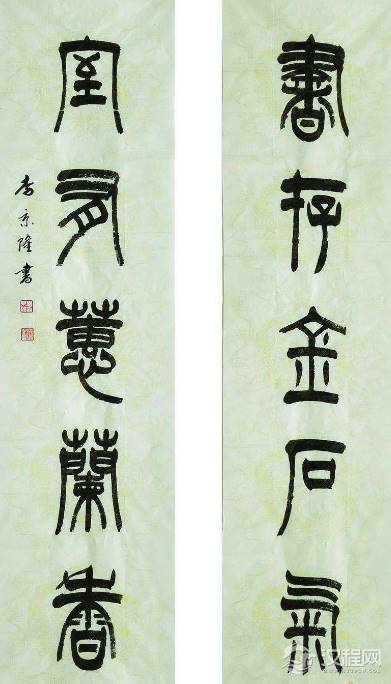 書存金石氣
室有蕙蘭香
李京隆書
汉程网